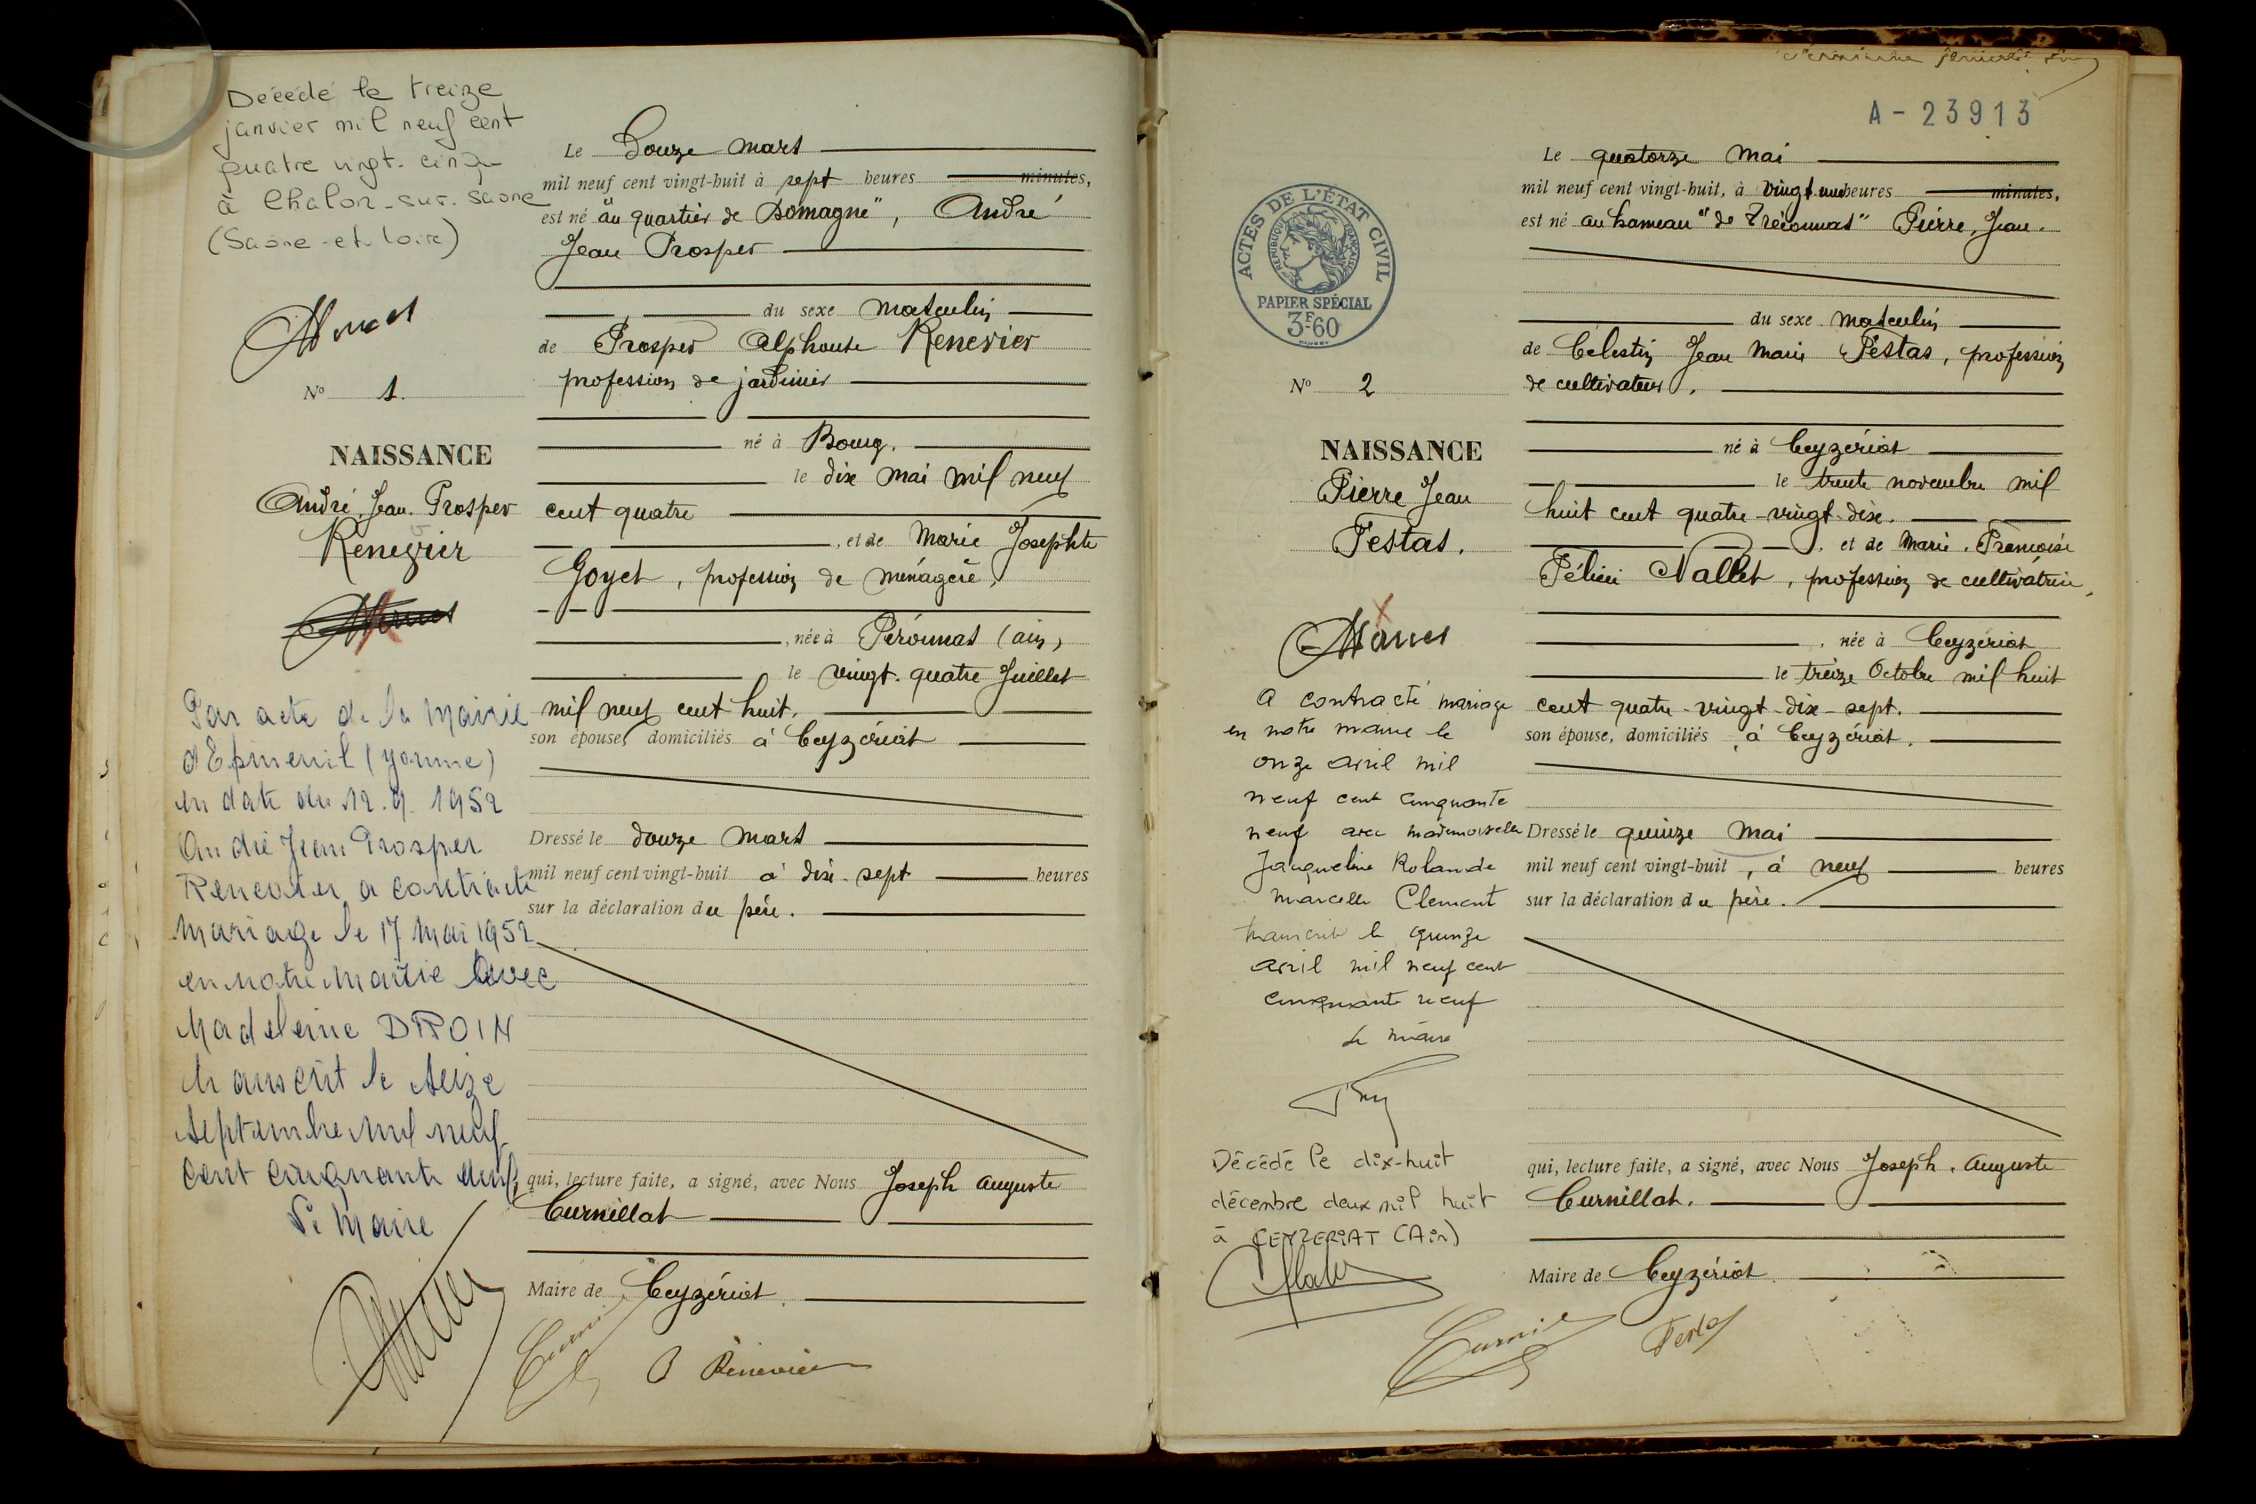 Décédé le treize
janvier mil neuf cent
quatre vingt-cinq
à Chalon-sur-Saône
(Saône-et-Loire)
N° 1.
NAISSANCE
André, Jean. Prosper
Renevier
Par acte de la Mairie
d'Epineuil (Yonne)
en date du 12.9.1952
André Jean Prosper
Renevier a contracté
mariage le 17 Mai 1952
en notre Mairie avec
Madeleine DROIN
transcrit le seize
septembre mil neuf
cent cinquante deux
Le Maire
Le Douze mars
mil neuf cent vingt-huit à sept heures minutes,
est né "au quartier de Domagne", André
Jean Prosper
du sexe masculin
de Prosper Alphonse Renevier
profession de jardinier
né à Bourg.
le dix mai mil neuf
cent quatre
, et de Marie Josephte
Goyet, profession de ménagère,
, née à Péronnas (ain)
le vingt-quatre Juillet
mil neuf cent huit.
son épouse, domiciliés à Ceyzériat
Dressé le douze mars
mil neuf cent vingt-huit à dix-sept heures
sur la déclaration du père.
qui, lecture faite, a signé, avec Nous Joseph Auguste
Curnillat
Maire de Ceyzériat
P Renevier
A-23913
ACTES DE L'ÉTAT CIVIL
RÉPUBLIQUE FRANÇAISE
PAPIER SPÉCIAL
3F60
N° 2
NAISSANCE
Pierre Jean
Festas.
A contracté mariage
en notre mairie le
onze avril mil
neuf cent cinquante
neuf avec mademoiselle
Jacqueline Rolande
Marcelle Clement
transcrit le quinze
avril mil neuf cent
cinquante neuf
Le maire
Décédé le dix-huit
décembre deux mil huit
à CEYZERIAT (Ain)
Le quatorze Mai
mil neuf cent vingt-huit, à vingt une heures minutes,
est né au hameau "de Tréconnas" Pierre, Jean.
du sexe masculin
de Célestin Jean Marie Festas, profession
de cultivateur,
né à Ceyzériat
le trente novembre mil
huit cent quatre-vingt-dix.
, et de Marie. Françoise
Félicie Nallet, profession de cultivatrice,
, née à Ceyzériat
le treize Octobre mil huit
cent quatre-vingt-dix-sept.
son épouse, domiciliés à Ceyzériat.
Dressé le quinze Mai
mil neuf cent vingt-huit, à neuf heures
sur la déclaration du père.
qui, lecture faite, a signé, avec Nous Joseph. Auguste
Curnillat.
Maire de Ceyzériat